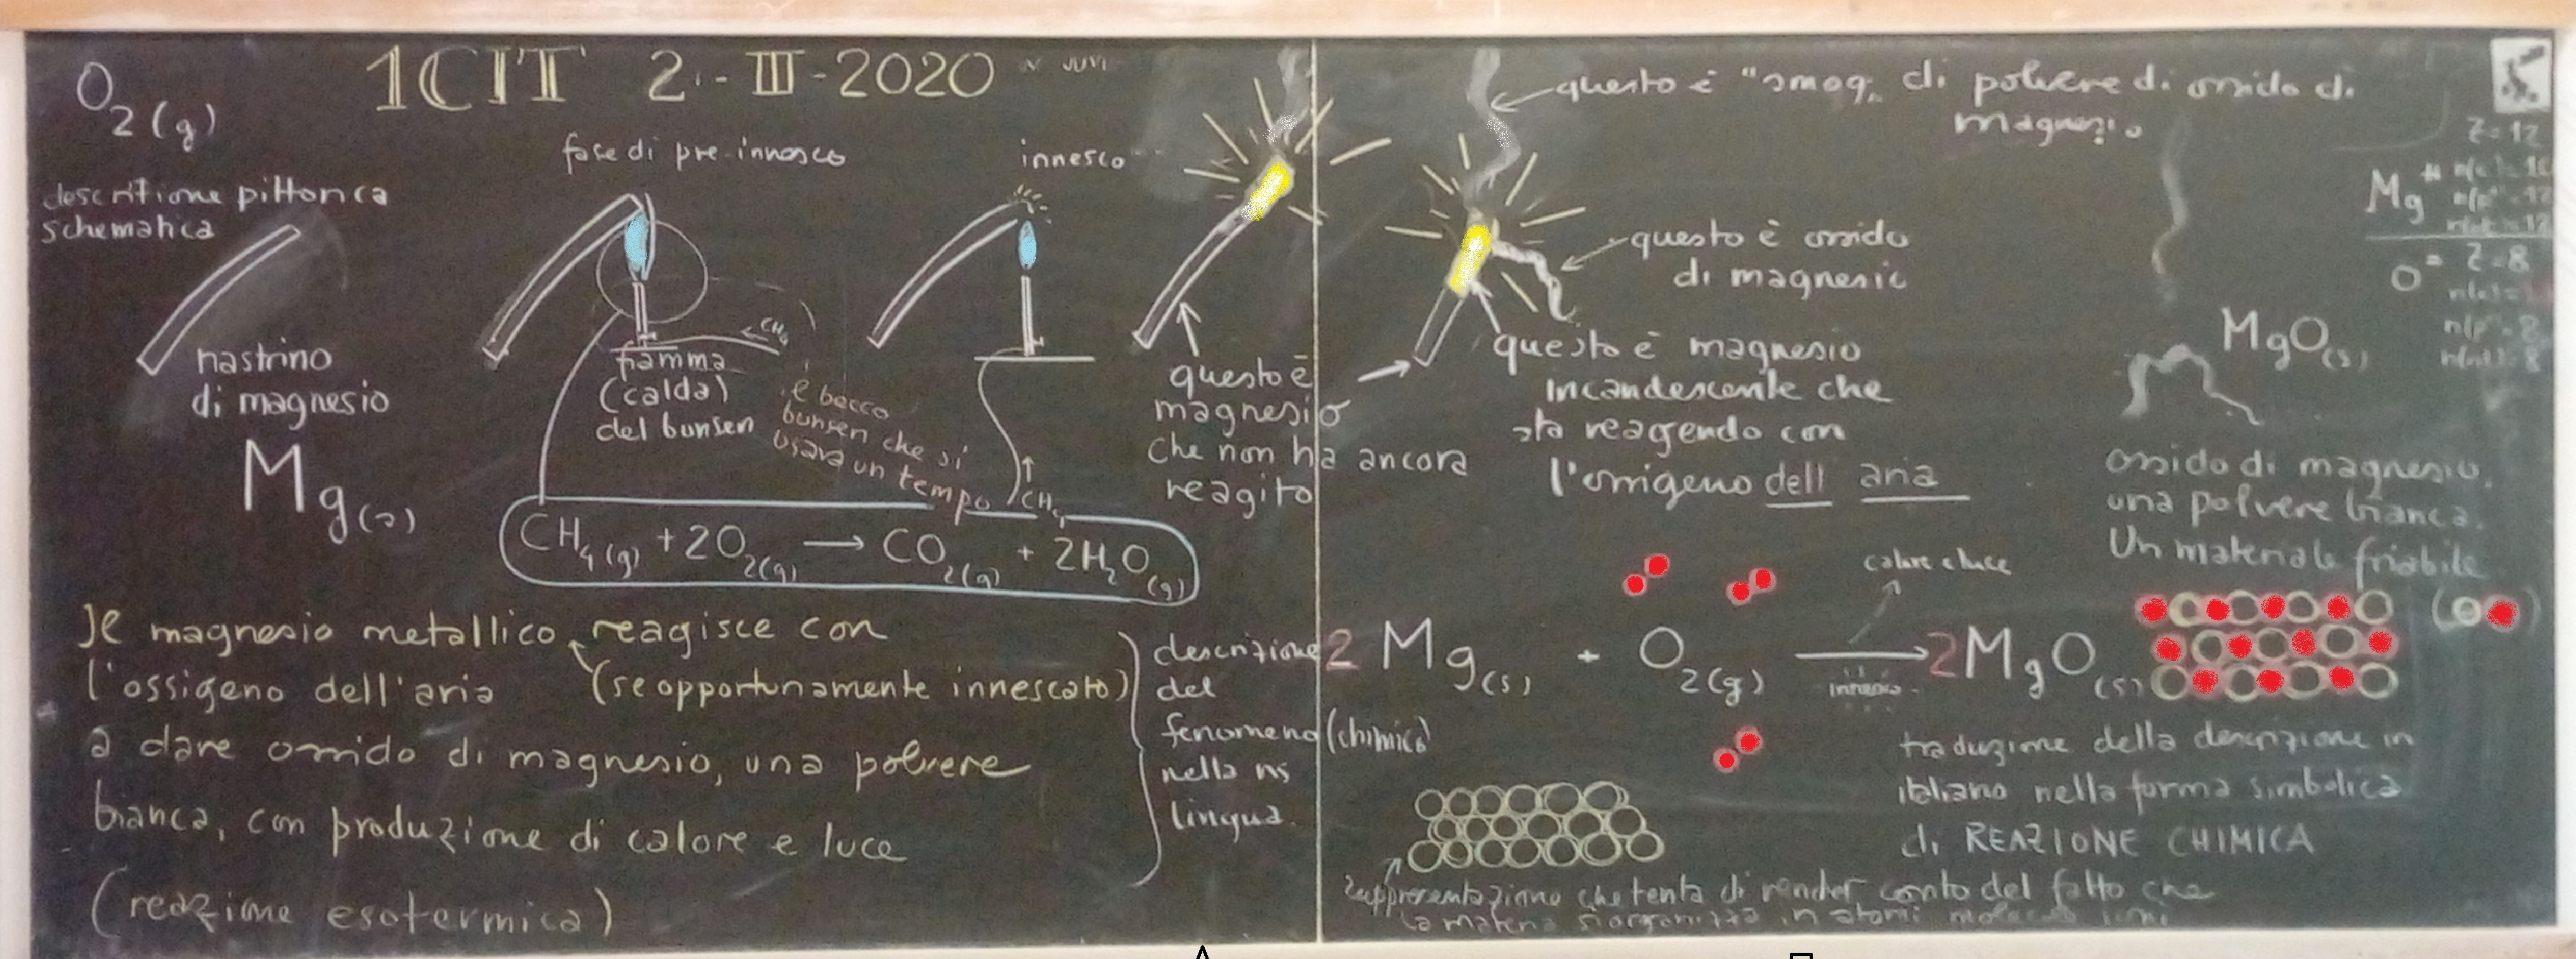 O2(g)
1CIT 2.-III-2020
descritione pittorica
schematica
nastrino
di magnesio
Mg(s)
fase di pre-innesco
CH4
fiamma
(calda)
del bunsen
il becco
bunsen che si
usava un tempo
innesco
CH4
CH4(g) + 2O2(g) → CO2(g) + 2H2O(g)
questo è
magnesio
che non ha ancora
reagito
questo è "smog" di polvere di ossido di
magnesio
questo è ossido
di magnesio
questo è magnesio
incandescente che
sta reagendo con
l'ossigeno dell aria
Z=12
Mg
Z=8
O
MgO(s)
ossido di magnesio,
una polvere bianca.
Un materiale friabile
Il magnesio metallico reagisce con
l'ossigeno dell'aria (se opportunamente innescato)
a dare ossido di magnesio, una polvere
bianca, con produzione di calore e luce
(reazione esotermica)
descrizione
del
fenomeno (chimico)
nella ns
lingua.
calore e luce
2 Mg(s) + O2(g) → 2MgO(s)
innesco
traduzione della descrizione in
italiano nella forma simbolica
di REAZIONE CHIMICA
rappresentazione che tenta di render conto del fatto che
la materia si organizza in atomi molecole ioni